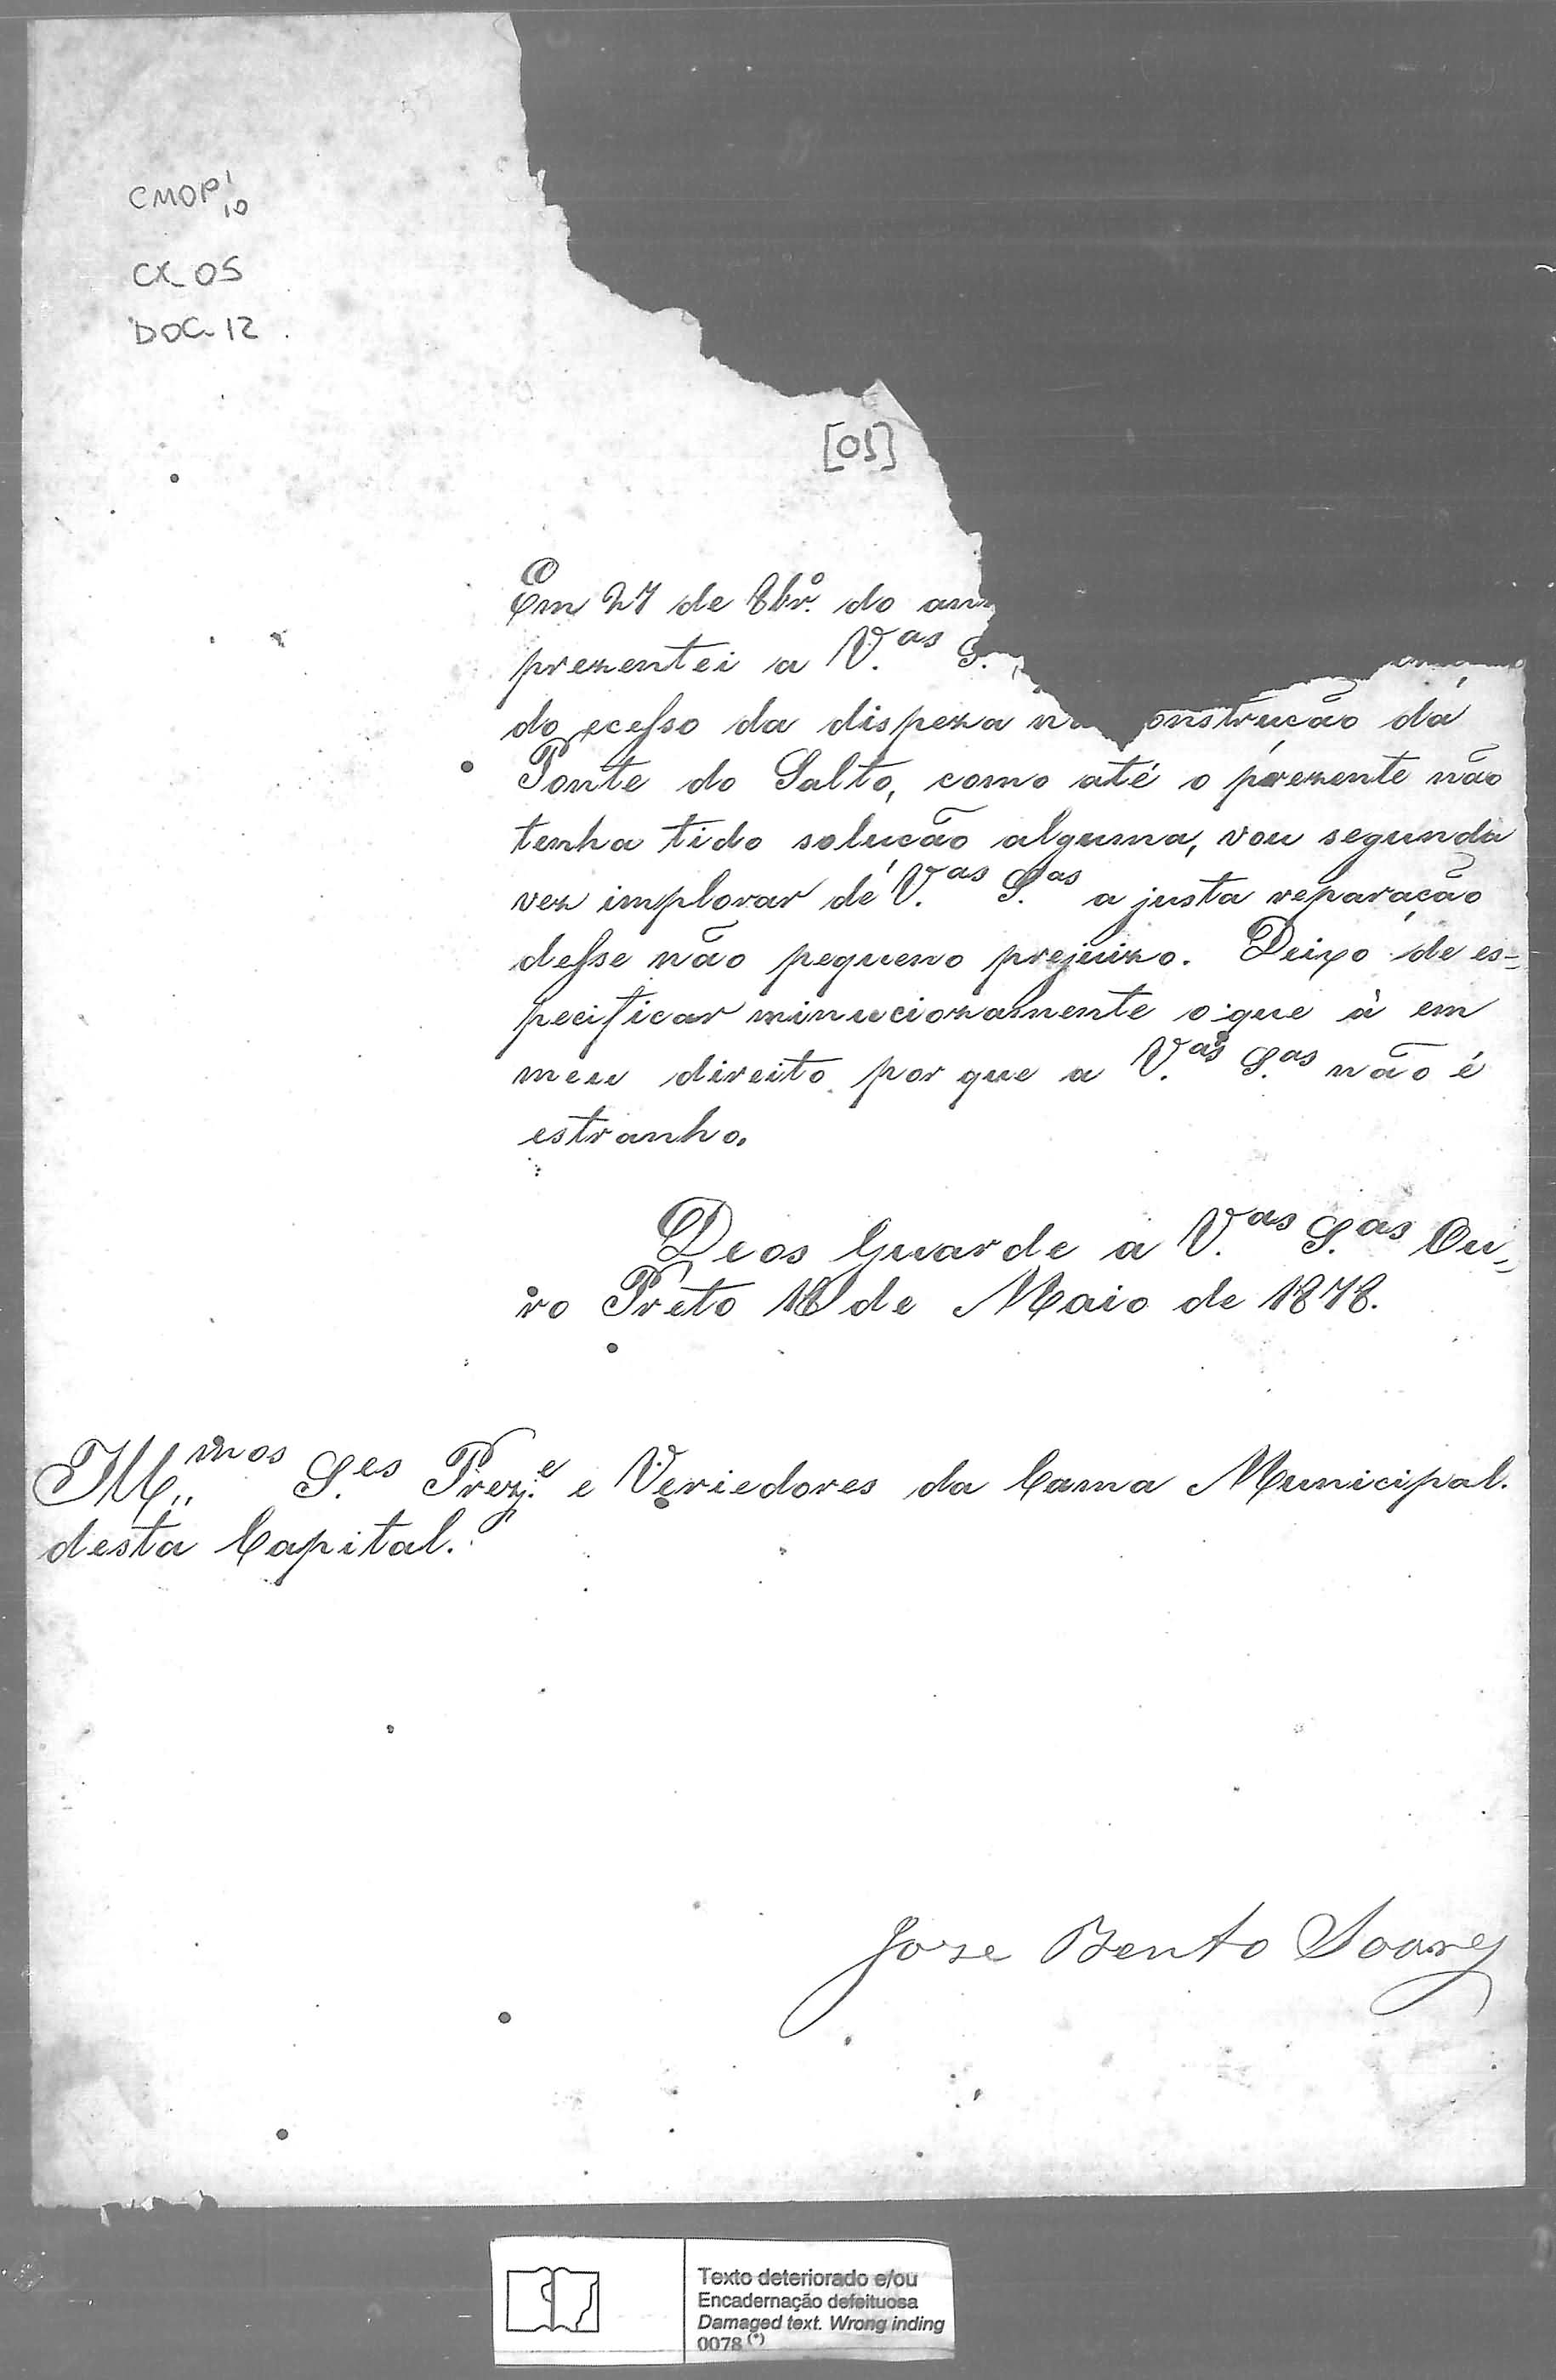 CMOP 1/10
CX_05
DOC. 12
[01]
Em 27 de 8br.º do an
prezentei a V.as S.
do ecesso da dispeza na onstrucão da
Ponte do Salto, como até o prezente não
tenha tido solucão alguma, vou segunda
vez implorar de V.as S.as a justa reparacão
desse não pequeno prejuizo. Deixo de es=
pecificar minuciozamente o que à em
meu direito por que a V.as S.as não é
estranho.
Deos Guarde a V.as S.as Ou=
ro Preto 18 de Maio de 1878.
Ill.mos S.es Prez.e e Veriedores da Cama Municipal.
desta Capital.
Joze Bento Soares
Texto deteriorado e/ou
Encadernação defeituosa
Damaged text. Wrong inding
0078 (*)